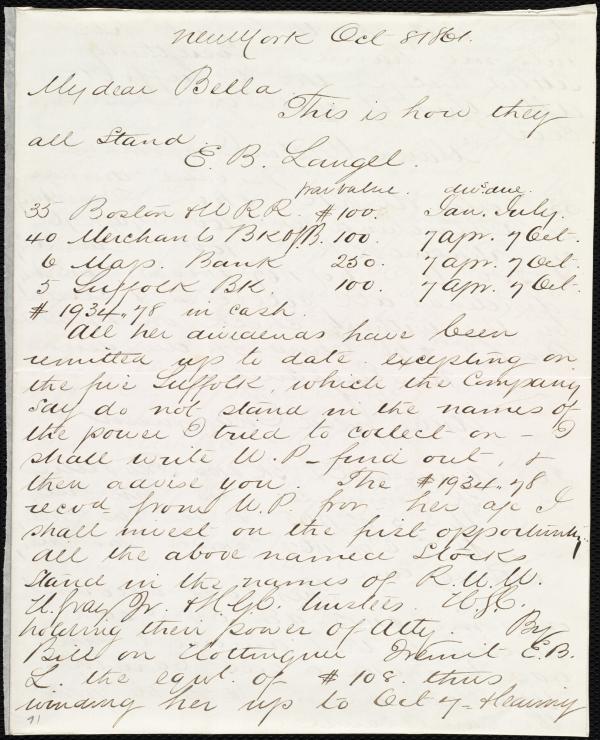 New York Oct 8 1861.
My dear Bella
This is how they
all Stand.
E. B. Laugel.
par value. div. due.
35 Boston & W R R. $100. Jan. July.
40 Merchants BK of B. 100. 7 Apr. 7 Oct.
6 Mass. Bank 250. 7 Apr. 7 Oct.
5 Suffolk BK. 100. 7 Apr. 7 Oct.
$1934.78 in cash.
All her dividends have been
remitted up to date excepting on
the five Suffolk, which the Company
say do not stand in the names of
the power I tried to collect on - I
shall write W. P. find out, &
then advise you. The $1934.78
recd from W. P. for her a/c I
shall invest on the first opportunity
All the above named Stocks
stand in the names of R. W. W.
H. Gray Jr. & H. G. C. trustees. H. G. C.
holding their power of Atty. By
Bill on Hottinguer I remit E. B.
L. the eqvt. of $108. thus
winding her up to Oct 7 - & leaving